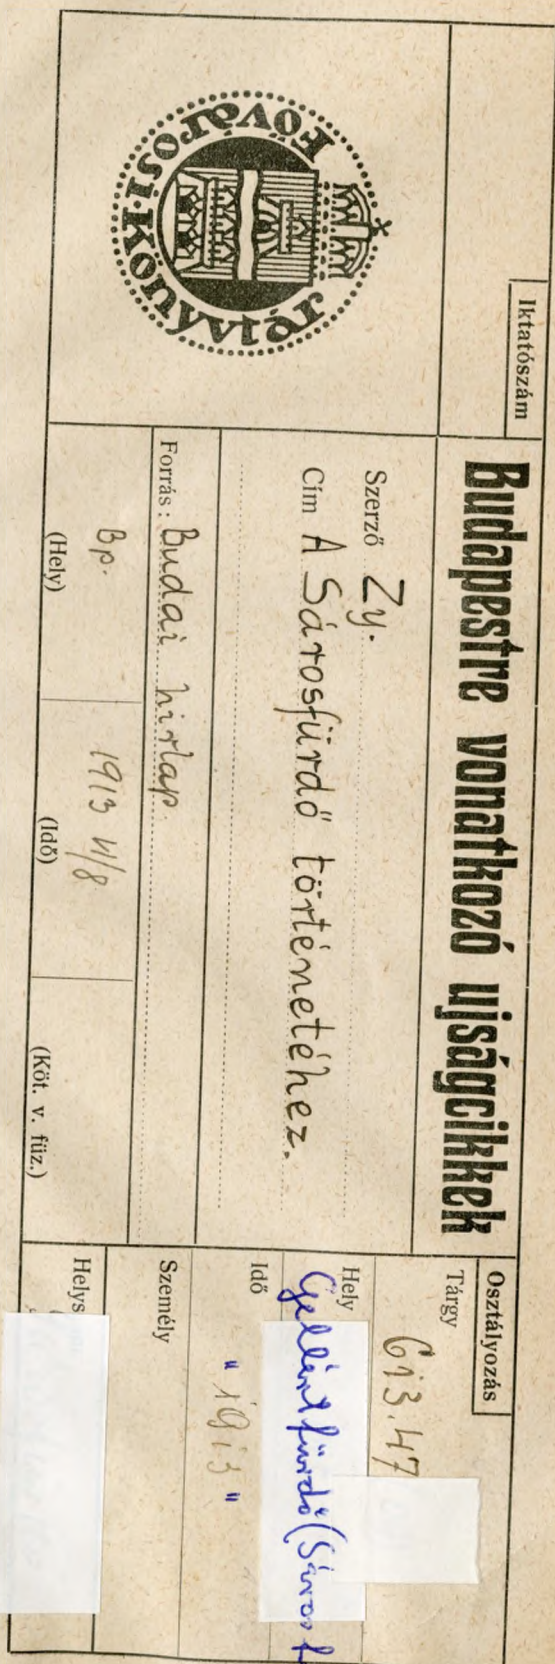 Fővárosi Könyvtár
Iktatószám
Budapestre vonatkozó ujságcikkek
Szerző Zy.
Cím A Sárosfürdő történetéhez.
Forrás: Budai hirlap.
Bp.
(Hely)
1913 II/8
(Idő)
(Köt. v. füz.)
Osztályozás
Tárgy
613.47
Hely
Gellértfürdő (Sárosf
Idő
" 1913 "
Személy
Helys